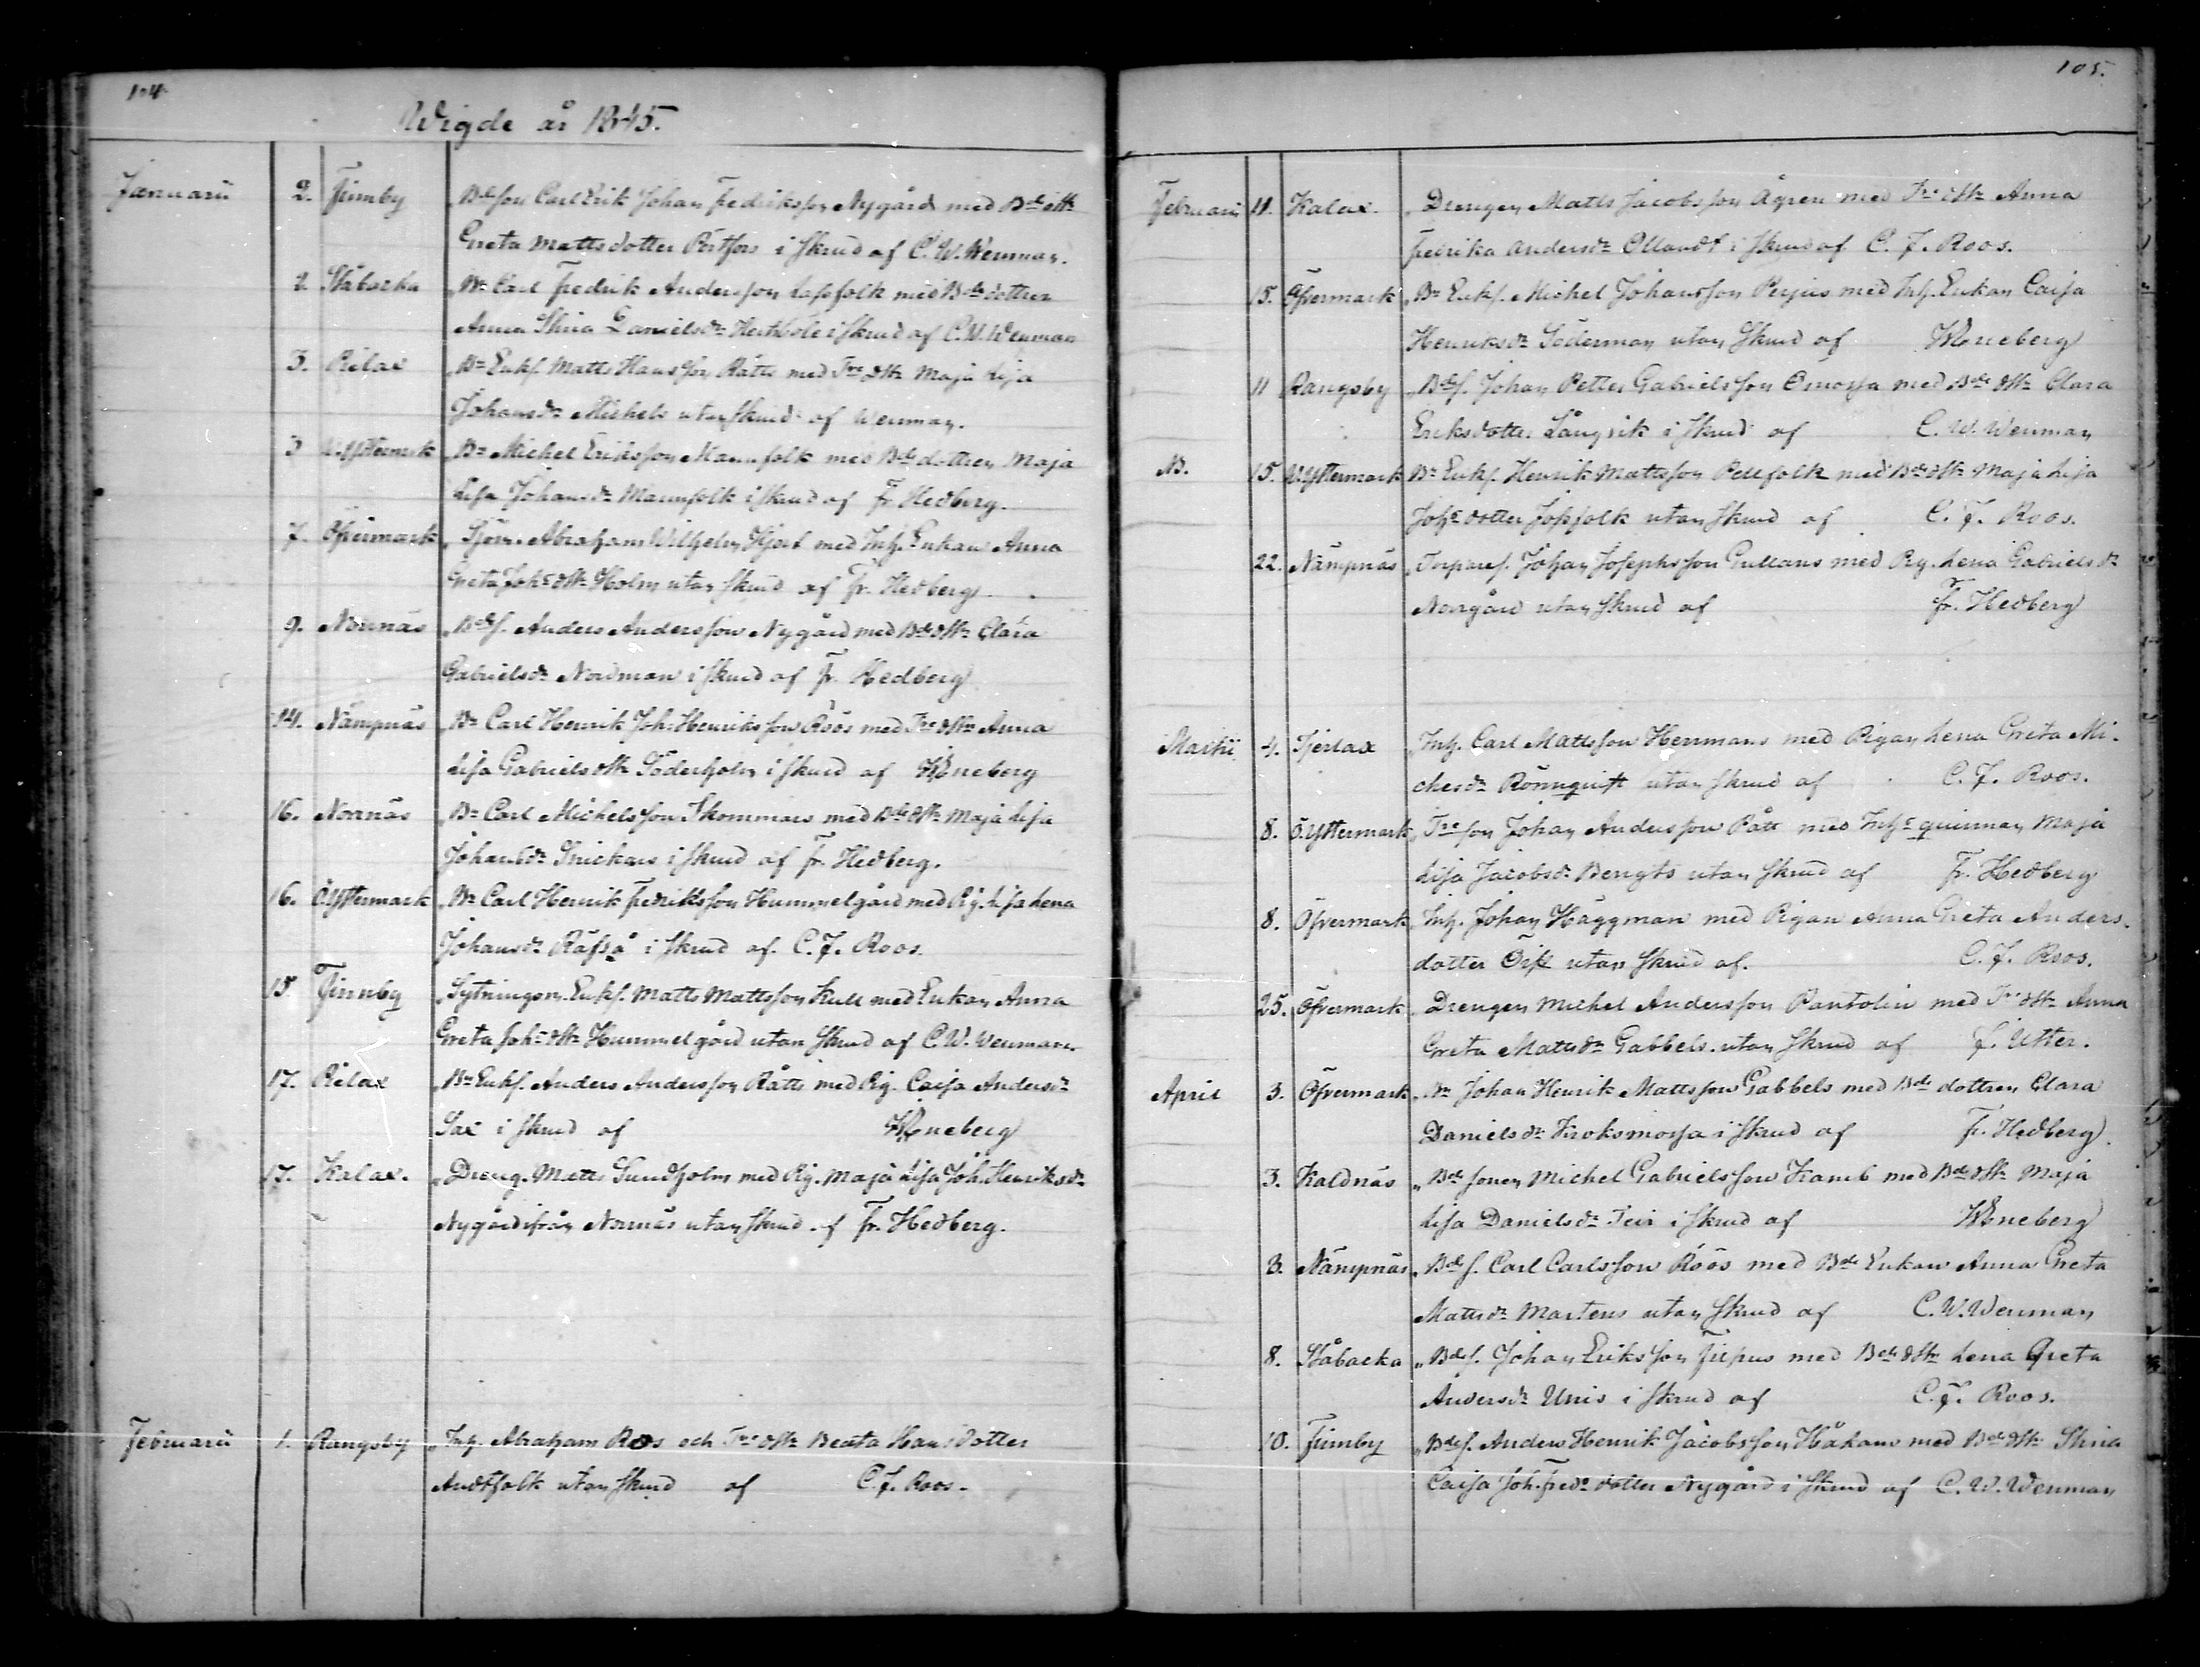 104
Wigde år 1845.
Januarii 2. Finnby Bdeson Carl Erik Johan Fredriksson Nygård med Bde dttr
Greta Mattsdotter Pértfors i skrud af C. W. Wenman.
2. Ståbacka Br Carl Fredrik Andersson Lassfolk med Bde dottren
Anna Stina Danielsdr i skrud af C. W. Wenman
3. Pielax Br Enkl. Matts Hansson Rätts med Trs dttr Maja Lisa
Johansdr Michels utan skrud af Wenman.
3 Ö.Yttermark Br Michel Eriksson Mannfolk med Bde dottren Maja
Lisa Johansdr Mannfolk i skrud af Fr. Hedberg.
7. Öfvermark Sjöm. Abraham Wilhelm Hjort med Inh. Enkan Anna
Greta Johs dttr Holm utan skrud af Fr. Hedberg.
9. Norrnäs Bdes. Anders Andersson Nygård med Bde dttr Clara
Gabrielsdr Nordman i skrud af Fr. Hedberg
14. Nämpnäs Br Carl Henrik Joh: Henriksson Röös med Trs dttr Anna
Lisa Gabriels dttr Söderholm i skrud af Wéneberg
16. Norrnäs Br Carl Michelsson Skommars med Bde dttr Maja Lisa
Johansdr Snickars i skrud af Fr. Hedberg.
16. Ö.Yttermark Br Carl Henrik Fredriksson Hummelgård med Pig. Lisa Lena
Johansdr Räfså i skrud af C. J. Roos.
15 Finnby Sytningsm. Enkl. Matts Mattsson Kull med Enkan Anna
Greta Johs dttr Hummelgård utan skrud af C. W. Wenman.
17. Pielax Br Enkl. Anders Andersson Rätts med Pig. Caisa Andersdr
Sax i skrud af Wéneberg
17. Kalax. Dreng. Matts Sundholm med Pig. Maja Lisa Joh. Henriksdr
Nygård ifrån Norrnäs utan skrud af Fr. Hedberg.
Februarii 1. Rangsby Inh. Abraham Roos och Trs dttr Beata Hansdotter
Andtfolk utan skrud af C. J. Roos.
105.
Februarii 11. Kalax. Drengen Matts Jacobsson Ågren med Trs dttr Anna
Fredrika Andersdr Ollandt i skrud af C. J. Roos.
15. Öfvermark Br Enkl. Michel Johansson Perjus med Inh. Enkan Caisa
Henriksdr Söderman utan skrud af Wéneberg
11 Rangsby Bdes. Johan Petter Gabrielsson Ömossa med Bde dttr Clara
Eriksdotter Långvik i skrud af C. W. Wenman
15. Ö.Yttermark Br Enkl. Henrik Mattsson Pellfolk med Bde dttr Maja Lisa
Johs dotter Jossfolk utan skrud af C. J. Roos.
22. Nämpnäs Torpares. Johan Josephsson Gullans med Pig. Lena Gabrielsdr
Norrgård utan skrud af Fr. Hedberg
Martii 4. Tjerlax Inh. Carl Mattsson Herrmans med Pigan Lena Greta Mi-
chelsdr Rönnqvist utan skrud af C. J. Roos.
8. Ö.Yttermark Trs son Johan Andersson Rätt med Inhs quinnan Maja
Lisa Jacobsdr Bengts utan skrud af Fr. Hedberg
8. Öfvermark Inh. Johan Häggman med Pigan Anna Greta Anders-
dotter utan skrud af. C. J. Roos.
25. Öfvermark Drengen Michel Andersson Pantolin med Trs dttr Anna
Greta Mattsdr Gabbels utan skrud af J. Utter.
April 3. Öfvermark Br Johan Henrik Mattsson Gabbels med Bde dottren Clara
Danielsdr Kroksmossa i skrud af Fr. Hedberg.
3. Kaldnäs Bde sonen Michel Gabrielsson Kamb med Bde dttr Maja
Lisa Danielsdr i skrud af Wéneberg
3. Nämpnäs Bdes. Carl Carlsson Röös med Bde Enkan Anna Greta
Mattsdr Martens utan skrud af C. W. Wenman
8. Ståbacka Bdes. Johan Eriksson Filpus med Bde dttr Lena Greta
Andersdr Unis i skrud af C. J. Roos.
10. Finnby Bdes. Anders Henrik Jacobsson Håkans med Bde dttr Stina
Caisa Joh. Freds dotter Nygård i skrud af C. W. Wenman